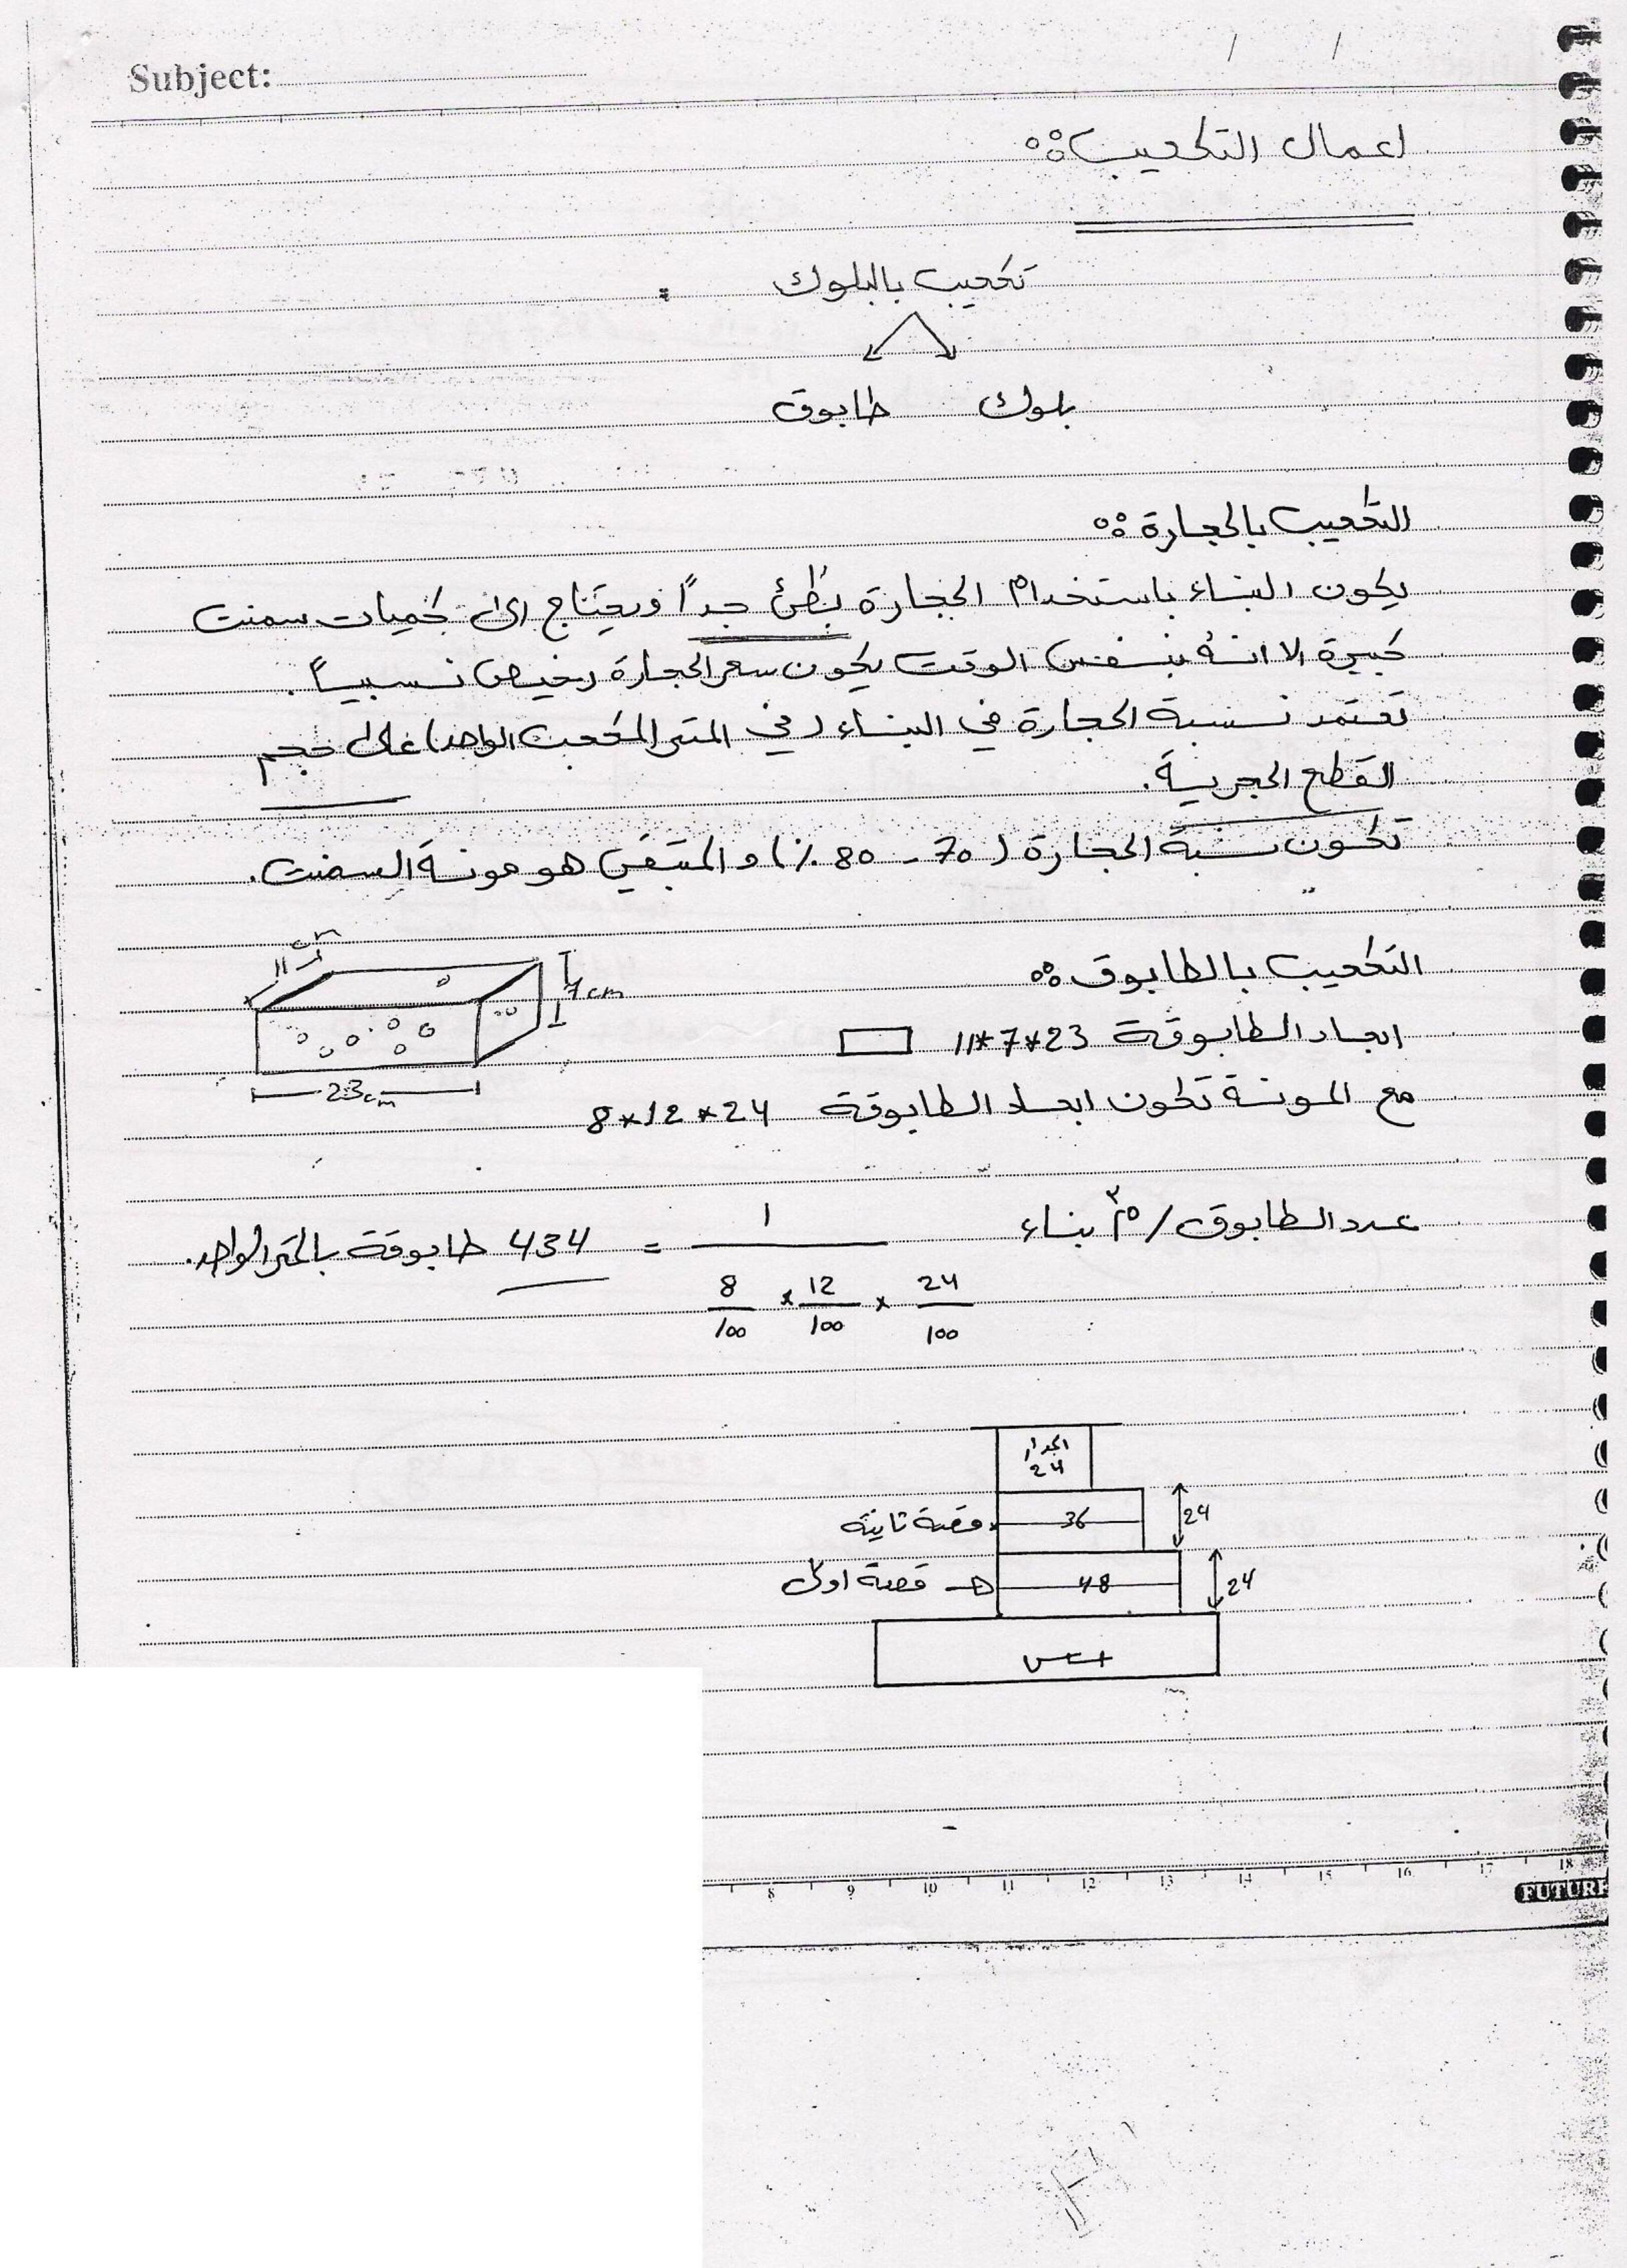 Subject:
/ /
اعمال التكعيب:
تكعيب بالبلوك
بلوك طابوق
التكعيب بالحجارة:
يكون البناء باستخدام الحجارة بطئ جداً ويحتاج الى كميات سمنت
كبيرة الا انه بنفس الوقت يكون سعر الحجارة رخيص نسبياً.
تعتمد نسبة الحجارة في البناء (في المتر المكعب الواحد) على حجم
القطع الحجرية.
تكون نسبة الحجارة (70 - 80 %) و المتبقي هو مونة السمنت.
التكعيب بالطابوق:
11 cm
7 cm
23 cm
ابعاد الطابوقة 23*7*11
مع المونة تكون ابعاد الطابوقة 24*12*8
عدد الطابوق / م٣ بناء 1 = 434 طابوقة بالمتر الواحد.
8/100 * 12/100 * 24/100
الجدار
24
قصة ثانية 36 24
قصة اولى 48 24
اساس
8 9 10 11 12 13 14 15 16 17 18
FUTURE